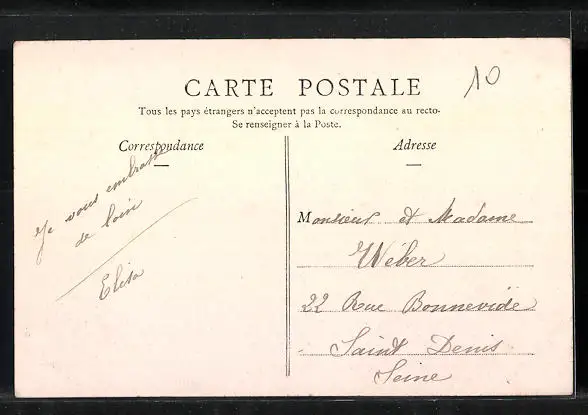 CARTE POSTALE
10
Tous les pays étrangers n'acceptent pas la correspondance au recto-
Se renseigner à la Poste.
Correspondance
Adresse
Je vous embrasse
de loin
Elisa
Monsieur et Madame
Wéber
22 Rue Bonnevide
Saint Denis
Seine